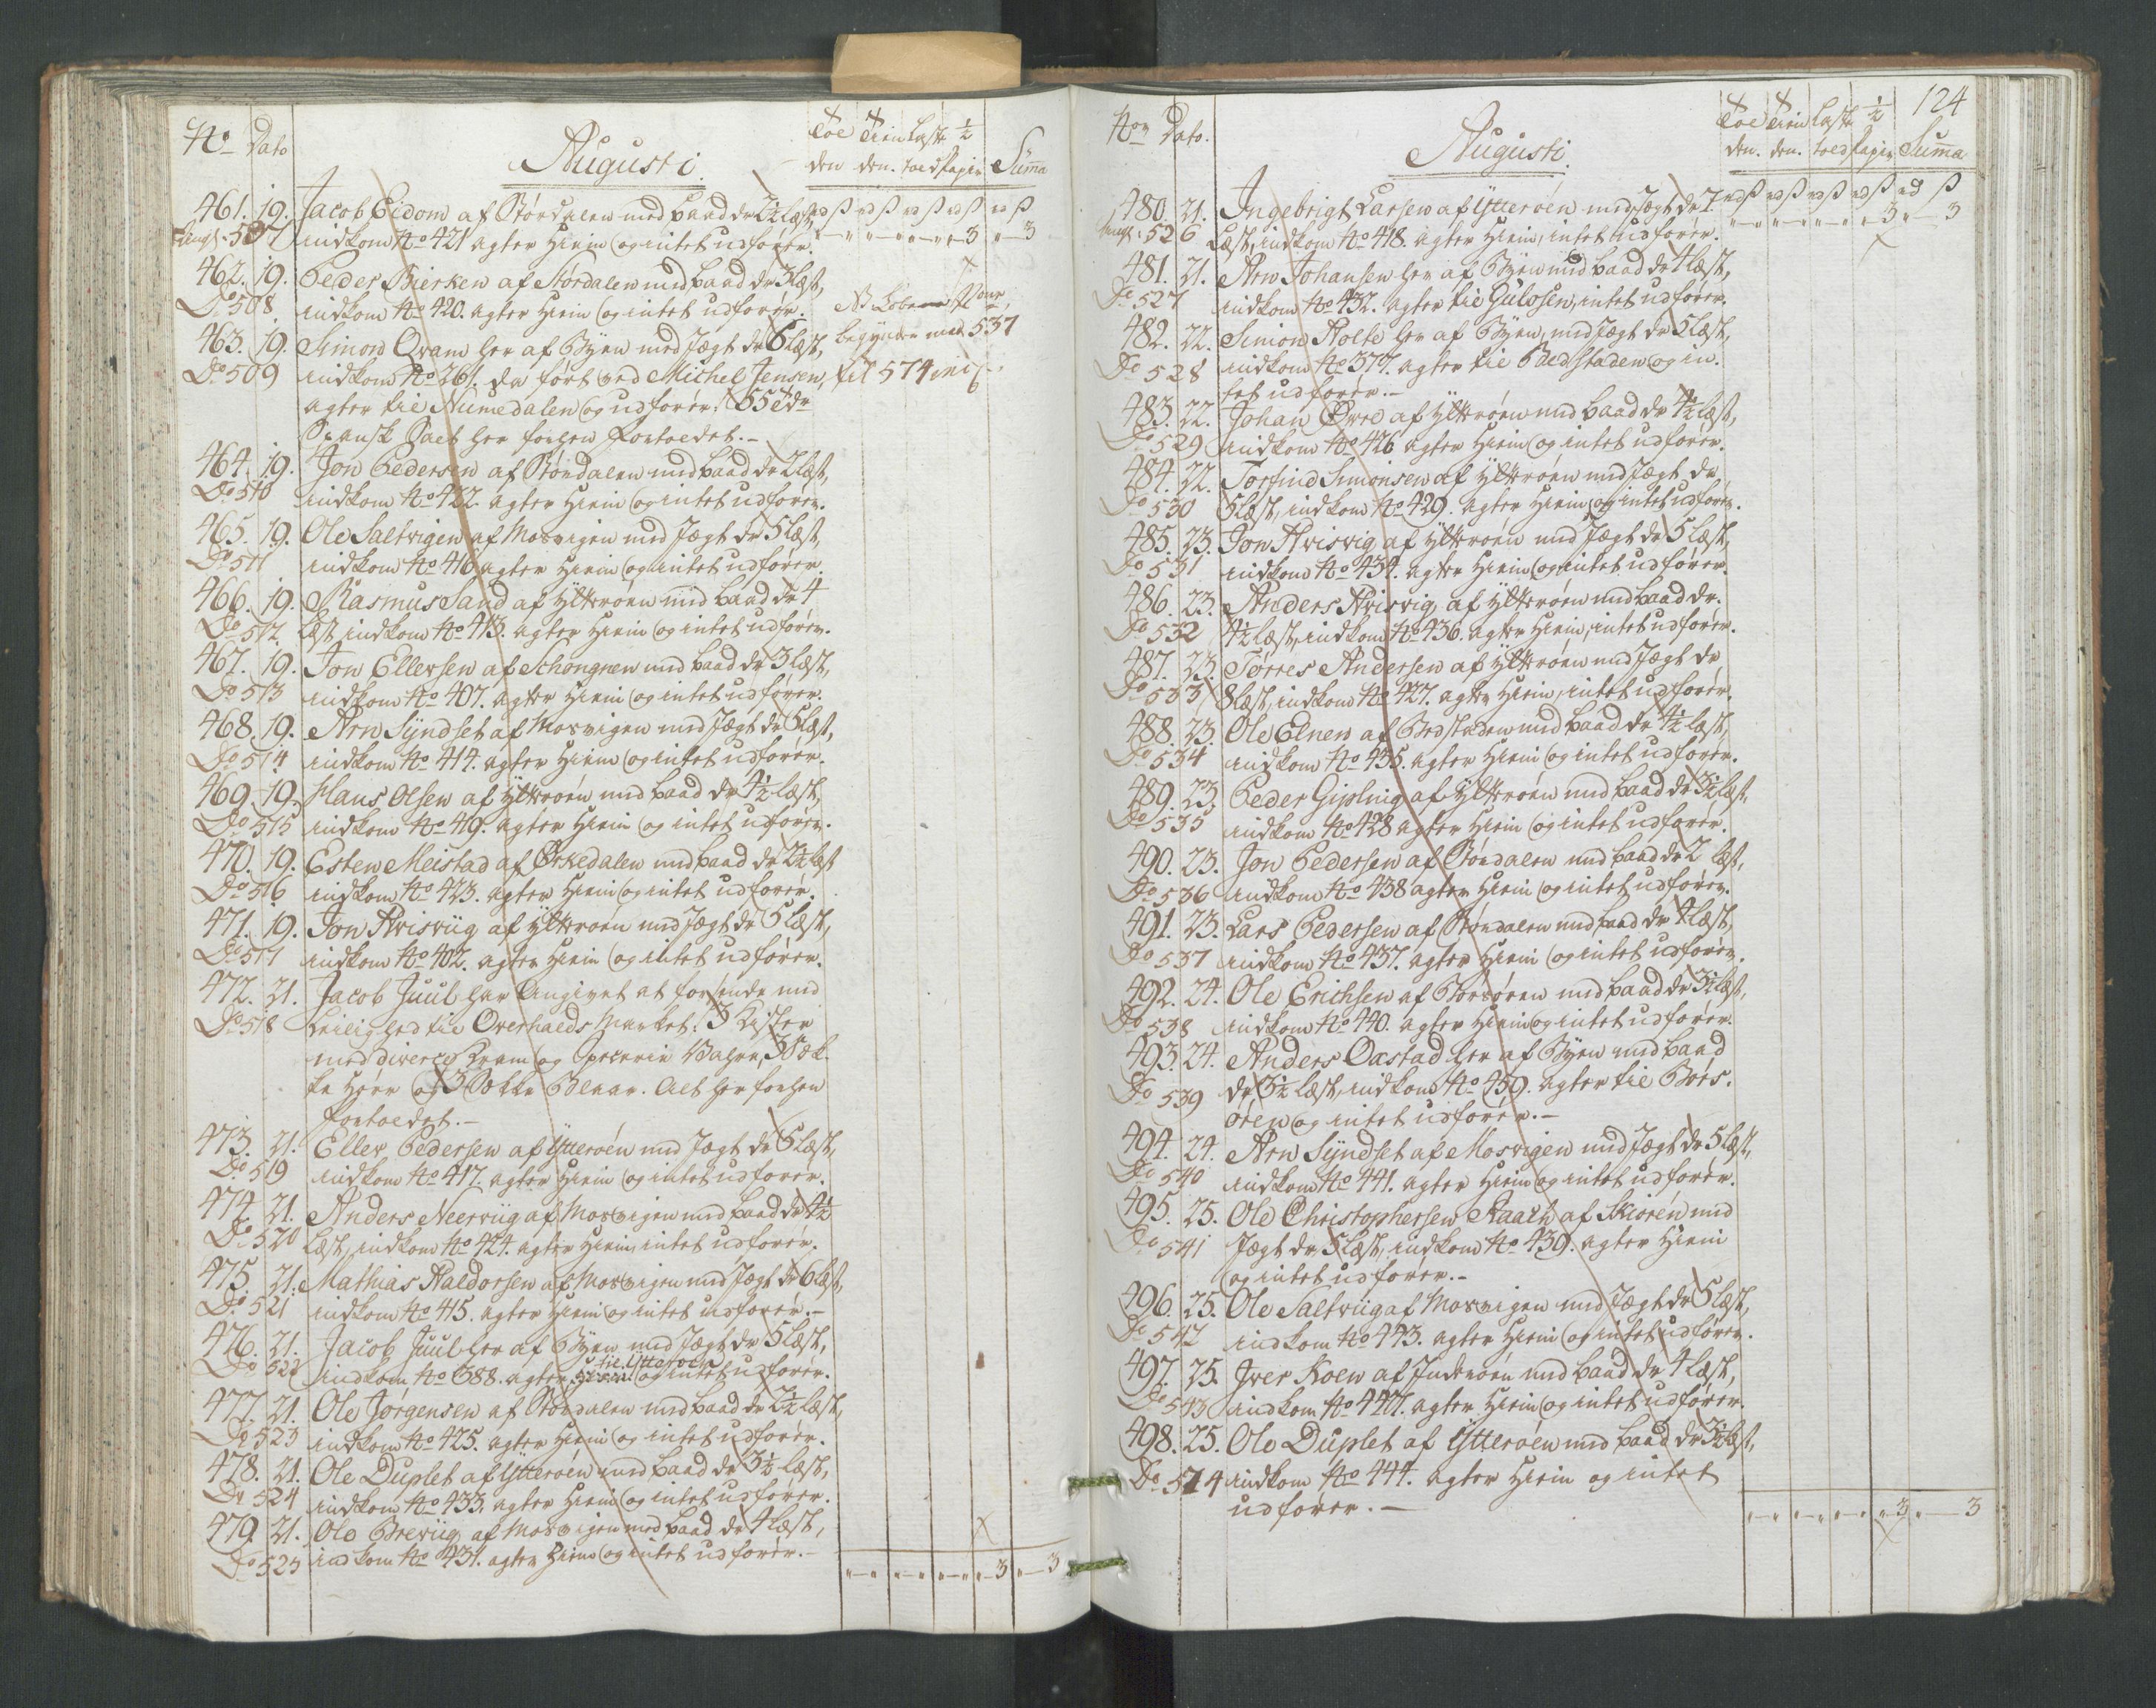 No Dato
Augusti.
Toe Tien Last ½
den den. toed Papir Summa
461. 19. Jacob Eidom af Størdalen med baad dr 2½ læst,
Angf. 507 indkom No 421 agter Hiem og intet udfører. 3 3
462. 19. Peder Bierken af Størdalen med baad dr 3 læst,
Do 508 indkom No 420. agter Hiem og intet udfører.
463. 19. Simon Qvam her af Byen med Jægt dr 6 læst, begynder med 537
Do 509 indkom No 261. da ført ved Michel Jensen, til 574
agter til Numedalen og udfører: 55 Tdr
Spansk Salt her forhen fortoedet.-
464. 19. Jon Pedersen af Størdalen med baad dr 2 læst,
Do 510 indkom No 422. agter Hiem og intet udfører.
465. 19. Ole Saltvigen af Mosvigen med Jægt dr 5 læst,
Do 511 indkom No 416 agter Hiem og intet udfører.
466. 19. Rasmus Sand af Ytterøen med baad dr 4
Do 512 læst indkom No 413. agter Hiem og intet udfører.
467. 19. Jon Ellevsen af Schongnen med baad dr 3 læst,
Do 513 indkom No 407. agter Hiem og intet udfører.
468. 19. Arn Syndset af Mosvigen med Jægt dr 5 læst,
Do 514 indkom No 414. agter Hiem og intet udfører.
469. 19. Hans Olsen af Ytterøen med baad dr 4½ læst,
Do 515 indkom No 419. agter Hiem og intet udfører.
470. 19. Esten Meistad af Ørkedalen med baad dr 2½ læst
Do 516 indkom No 423. agter Hiem og intet udfører.
471. 19. Jon Hvisviig af Ytterøen med Jægt dr 5 læst,
Do 517 indkom No 402. agter Hiem og intet udfører.
472. 21. Jacob Juul har Angivet at forsende med
Do 518 Leilighed til Overhalds Market: 3 Kister
med diverse Kram og Specerie Vahre, 3 Sæk-
ke Hør og 3 Sække Blaar. Alt her forhen
fortoedet.-
473. 21. Ellev Pedersen af Ytterøen med Jægt dr 6 læst,
Do 519 indkom No 417. agter Hiem og intet udfører.
474. 21. Anders Neerviig af Mosvigen med baad dr 4½
Do 520 læst, indkom No 424. agter Hiem, intet udfører.
475. 21. Mathias Haldorsen af Mosvigen med Jægt dr 6 læst,
Do 521 indkom No 415. agter Hiem og intet udfører.-
476. 21. Jacob Juul her af Byen med Jægt dr 5 læst,
til Ytterøen
Do 522 indkom No 388. agter Hiem og intet udfører.
477. 21. Ole Jørgensen af Størdalen med baad dr 2½ læst,
Do 523 indkom No 425. agter Hiem og intet udfører.
478. 21. Ole Duplet af Ytterøen med baad dr 3½ læst,
Do 524 indkom No 433. agter Hiem og intet udfører.
479. 21. Ole Breviig af Mosvigen med baad dr 4 læst,
Do 525 indkom No 431. agter Hiem og intet udfører.- 3 3
124
No Dato.
Augusti.
Toe Tien Last ½
den. den. toed Papir Summa
480. 21. Ingebrigt Larsen af Ytterøen med Jægt dr 7
Angf. 526 læst, indkom No 418. agter Hiem, intet udfører. 3 3
481. 21. Arn Johansen her af Byen med baad dr 4 læst,
Do 527 indkom No 432. agter til Gulosen, intet udfører.
482. 22. Simon Holte her af Byen, med Jægt dr 5 læst,
Do 528 indkom No 377. agter til Bedstaden og in-
tet udfører.-
483. 22. Johan Øvre af Ytterøen med baad dr 4½ læst,
Do 529 indkom No 426 agter Hiem og intet udfører.
484. 22. Torfind Simonsen af Ytterøen med Jægt dr
Do 530 5 læst, indkom No 429. agter Hiem og intet udfører.
485. 23. Jon Hvisvig af Ytterøen med Jægt dr 5 læst,
Do 531 indkom No 434. agter Hiem og intet udfører.
486. 23. Anders Hvisvig af Ytterøen med baad dr.
Do 532 4½ læst, indkom No 436. agter Hiem, intet udfører.
487. 23. Tørres Andersen af Ytterøen med Jægt dr
Do 533 8 læst, indkom No 427. agter Hiem, intet udfører.
488. 23. Ole Elnen af Bedstaden med baad dr 4½ læst,
Do 534 indkom No 435. agter Hiem og intet udfører.
489. 23. Peder Gipling af Ytterøen med baad dr 3½ læst,
Do 535 indkom No 428 agter Hiem og intet udfører.
490. 23. Jon Pedersen af Størdalen med baad dr 2 læst,
Do 536 indkom No 438 agter Hiem og intet udfører.
491. 23. Lars Pedersen af Størdalen med baad dr 4 læst,
Do 537 indkom No 437. agter Hiem og intet udfører.
492. 24. Ole Erichsen af Børsøren med baad dr 3½ læst,
Do 538 indkom No 440. agter Hiem og intet udfører.
493. 24. Anders Oastad her af Byen med baad
Do 539 dr 3½ læst, indkom No 459. agter til Børs-
øren og intet udfører.-
494. 24. Arn Syndset af Mosvigen med Jægt dr 5 læst,
Do 540 indkom No 441. agter Hiem og intet udfører.
495. 25. Ole Christophersen Raach af Skiørén med
Do 541 Jægt dr 5 læst, indkom No 439. agter Hiem
og intet udfører.-
496. 25. Ole Saltviig af Mosvigen med Jægt dr 5 læst,
Do 542 indkom No 443. agter Hiem og intet udfører.
497. 25. Iver Koen af Inderøen med baad dr 4 læst,
Do 543 indkom No 447. agter Hiem og intet udfører.
498. 25. Ole Duplet af Ytterøen med baad dr 3½ læst,
Do 544 indkom No 444. agter Hiem og intet
udfører.- 3 3